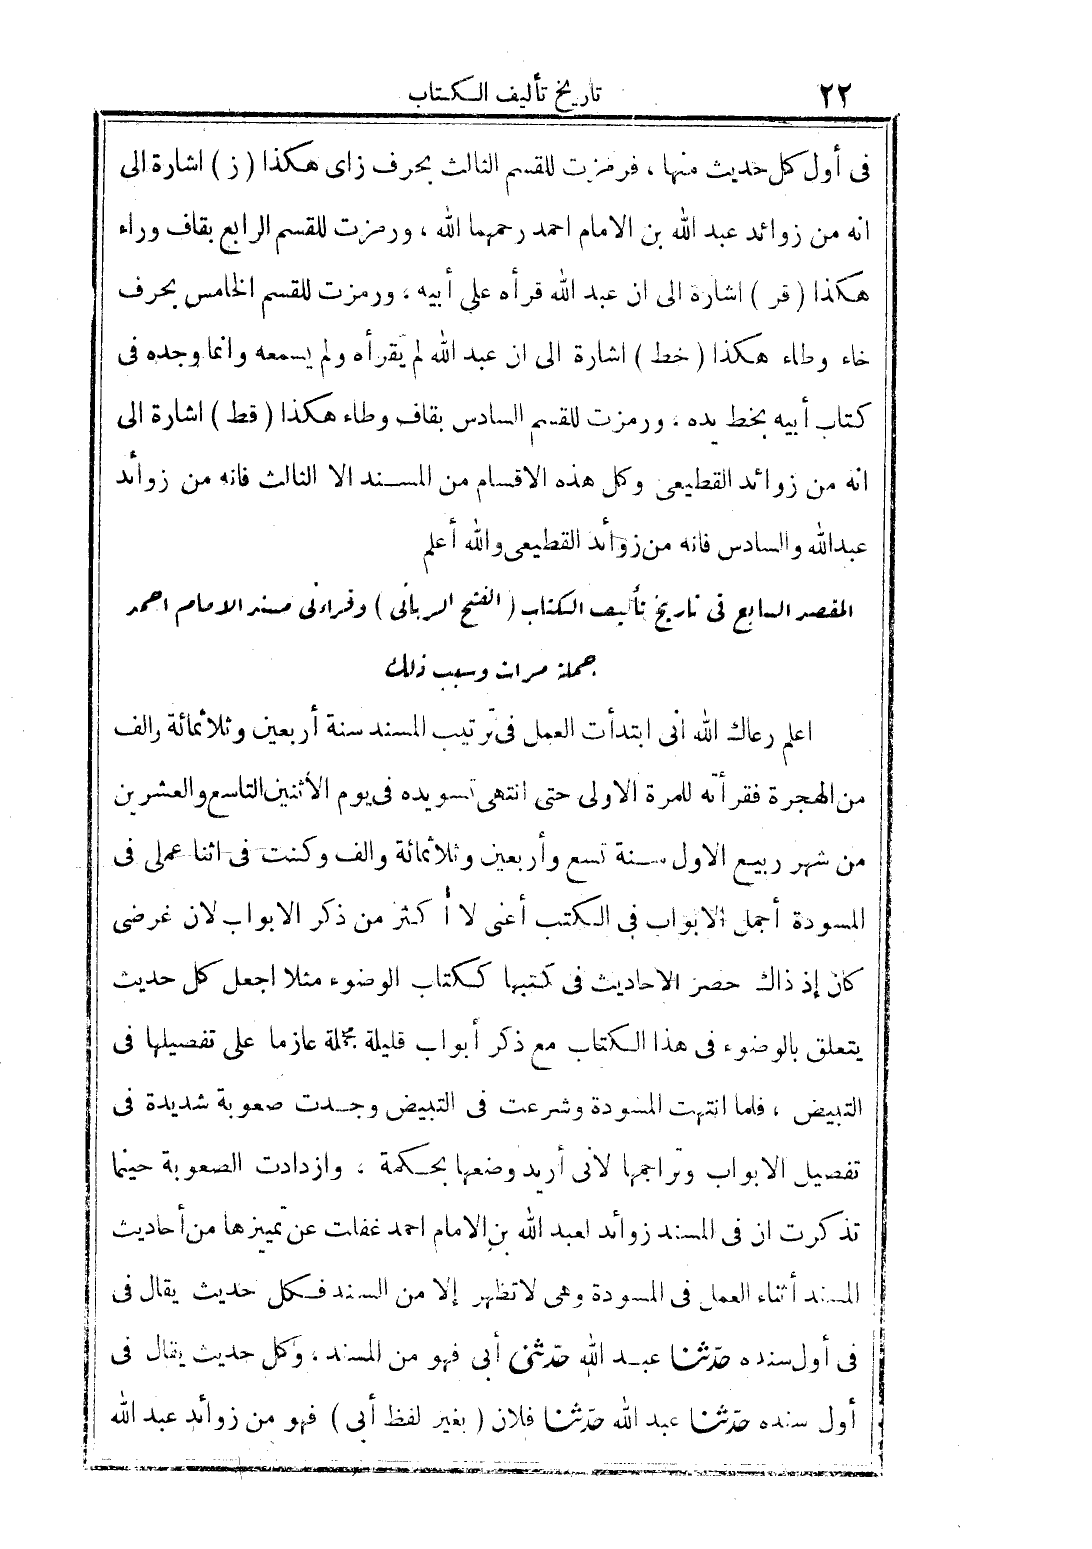 ٢٢
تاريخ تأليف الكتاب
فى أول كل حديث منها ، فرمزت للقسم الثالث بحرف زاى هكذا ( ز ) اشارة الى
انه من زوائد عبد الله بن الامام احمد رحمهما الله ، ورمزت للقسم الرابع بقاف وراء
هكذا ( قر ) اشارة الى ان عبد الله قرأه على أبيه ، ورمزت للقسم الخامس بحرف
خاء وطاء هكذا ( خط ) اشارة الى ان عبد الله لم يقرأه ولم يسمعه وانما وجده فى
كتاب أبيه بخط يده ، ورمزت للقسم السادس بقاف وطاء هكذا ( قط ) اشارة الى
انه من زوائد القطيعى وكل هذه الاقسام من المسند الا الثالث فانه من زوائد
عبدالله والسادس فانه من زوائد القطيعى والله أعلم
المقصد السابع فى تاريخ تأليف الكتاب ( الفتح الربانى ) وقراءتى مسند الامام احمد
جملة مرات وسبب ذلك
اعلم رعاك الله أنى ابتدأت العمل فى ترتيب المسند سنة أربعين وثلاثمائة والف
من الهجرة فقرأته للمرة الاولى حتى انتهى تسويده فى يوم الأثنين التاسع والعشرين
من شهر ربيع الاول سنة تسع وأربعين وثلاثمائة والف وكنت فى اثنا عملى فى
المسودة أجمل الابواب فى الكتب أعنى لا أكثر من ذكر الابواب لان غرضى
كان إذ ذاك حصر الاحاديث فى كتبها ككتاب الوضوء مثلا اجعل كل حديث
يتعلق بالوضوء فى هذا الكتاب مع ذكر أبواب قليلة مجملة عازما على تفصيلها فى
التبيض ، فلما انتهت المسودة وشرعت فى التبيض وجدت صعوبة شديدة فى
تفصيل الابواب وتراجمها لأنى أريد وضعها بحكمة ، وازدادت الصعوبة حينما
تذكرت ان فى المسند زوائد لعبد الله بن الامام احمد غفلت عن تمييزها من أحاديث
المسند أثناء العمل فى المسودة وهى لاتظهر إلا من السند فكل حديث يقال فى
فى أول سنده حدّثنا عبد الله حدّثنى أبى فهو من المسند ، وكل حديث يقال فى
أول سنده حدّثنا عبد الله حدّثنا فلان ( بغير لفظ أبى ) فهو من زوائد عبد الله